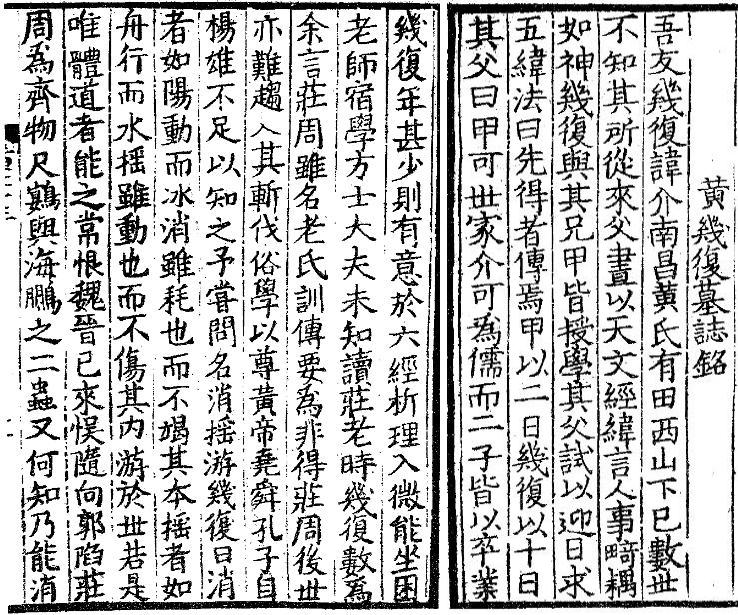 黃幾復墓誌銘
吾友幾復諱介南昌黃氏有田西山下已數世
不知其所從來父晝以天文經緯言人事畸耦
如神幾復與其兄甲皆授學其父試以迎日求
五緯法曰先得者傳焉甲以二日幾復以十日
其父曰甲可世家介可為儒而二子皆以卒業
幾復年甚少則有意於六經析理入微能坐困
老師宿學方士大夫未知讀莊老時幾復數為
余言莊周雖名老氏訓傳要為非得莊周後世
亦難趨入其斬伐俗學以尊黃帝堯舜孔子自
楊雄不足以知之予嘗問名消搖游幾復曰消
者如陽動而冰消雖耗也而不竭其本搖者如
舟行而水搖雖動也而不傷其內游於世若是
唯體道者能之常恨魏晉已來悮隨向郭陷莊
周為齊物尺鷃與海鵬之二蟲又何知乃能消